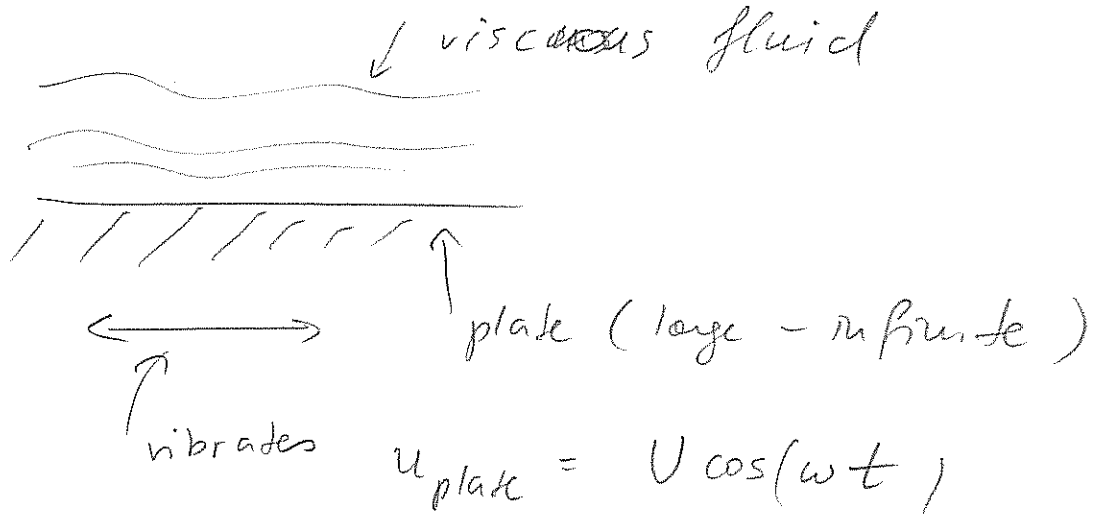 viscous fluid
plate (large - infinite)
vibrates
u plate = U cos(ωt)